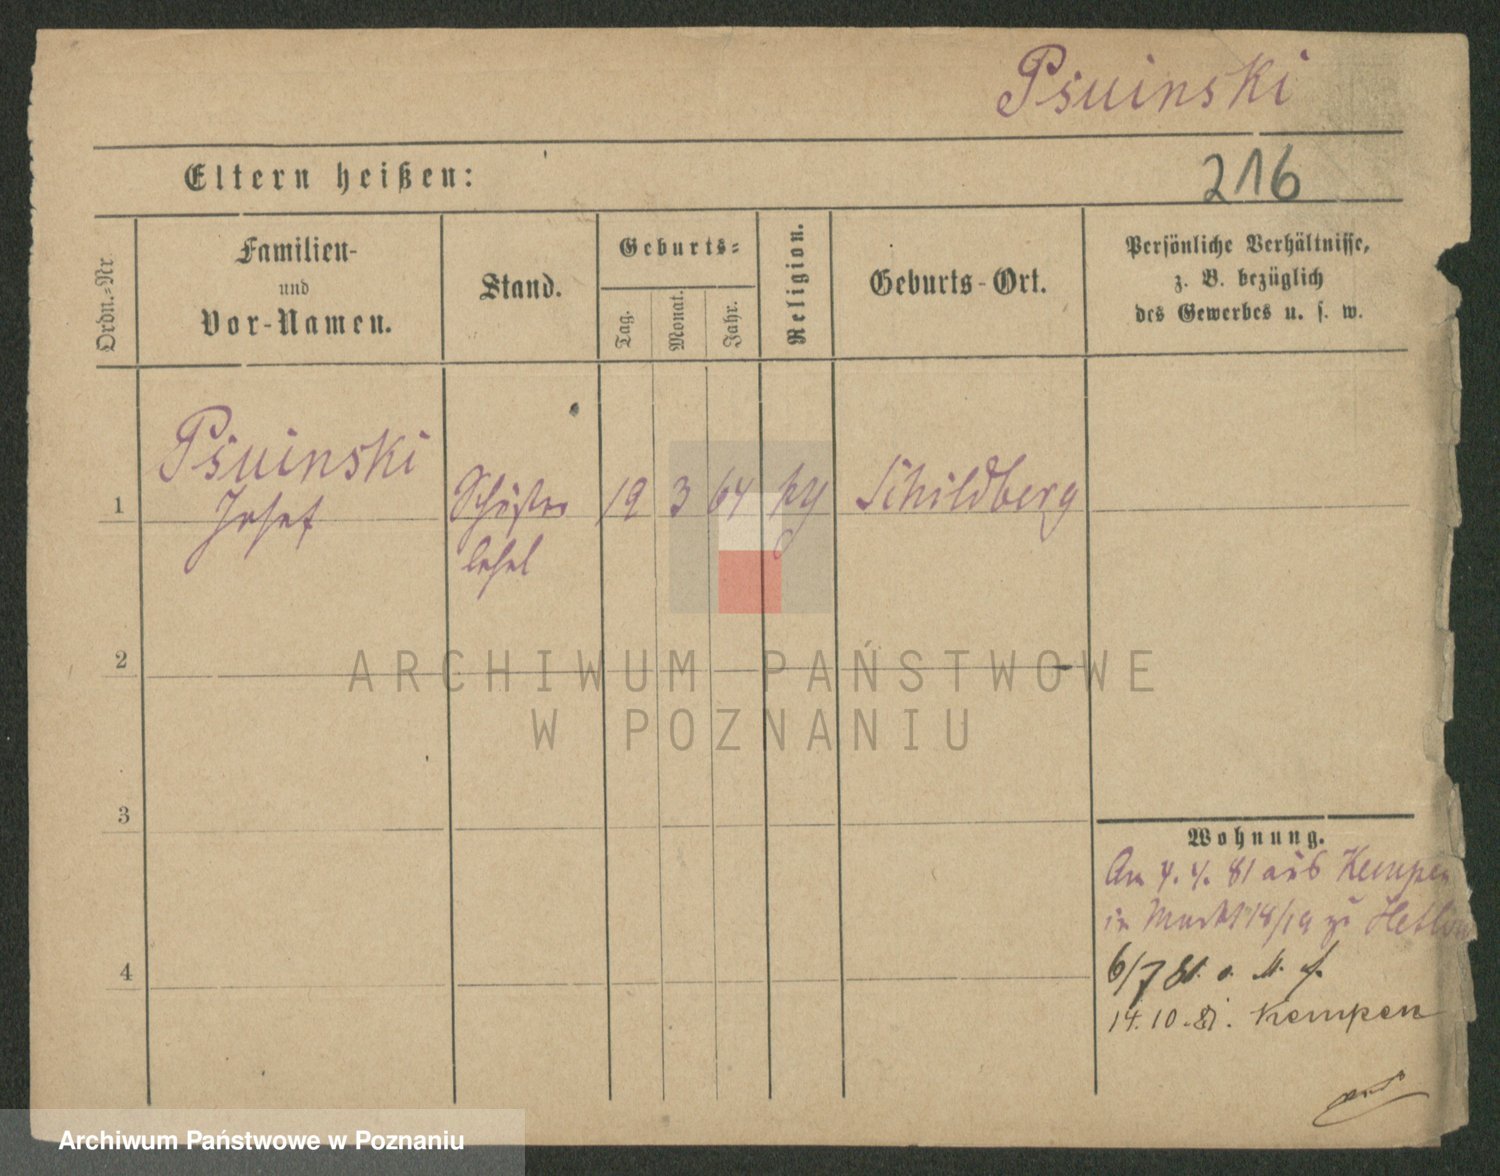 Psuinski
Eltern heißen:
216
Ordn.-Nr
Familien-
und
Vor-Namen.
Stand.
Geburts-
Tag.
Monat.
Jahr.
Religion.
Geburts-Ort.
Persönliche Verhältnisse,
z. B. bezüglich
des Gewerbes u. s. w.
1
Psuinski
Josef
19
3
64
Schildberg
2
ARCHIWUM PAŃSTWOWE
W POZNANIU
3
Wohnung.
Am 4. 4. 81 aus Kempen
in Markt 18/19
4
6/7 81.
14.10.81. Kempen
Archiwum Państwowe w Poznaniu